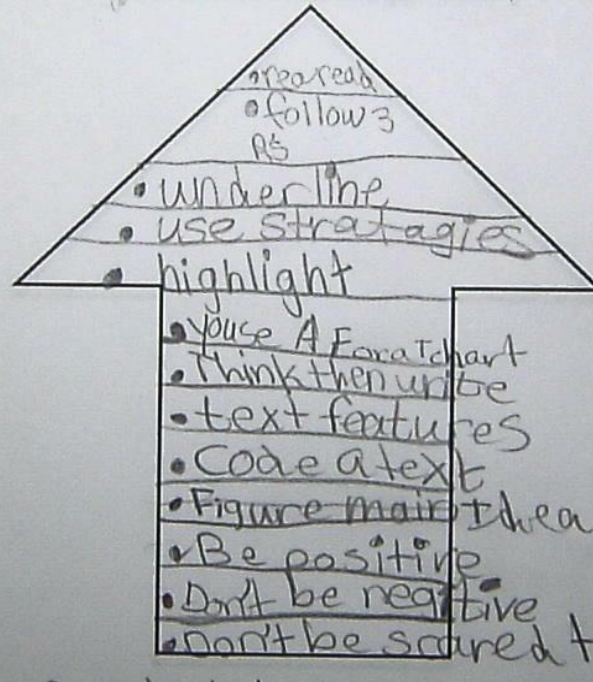 • rearead
• follow 3
Rs
• underline
• use stratagies
• highlight
• youse A For a Tchart
• Think then write
• text features
• Code a text
• Figure main Idhea
• Be positive
• Don't be negitive
• Don't be scared t